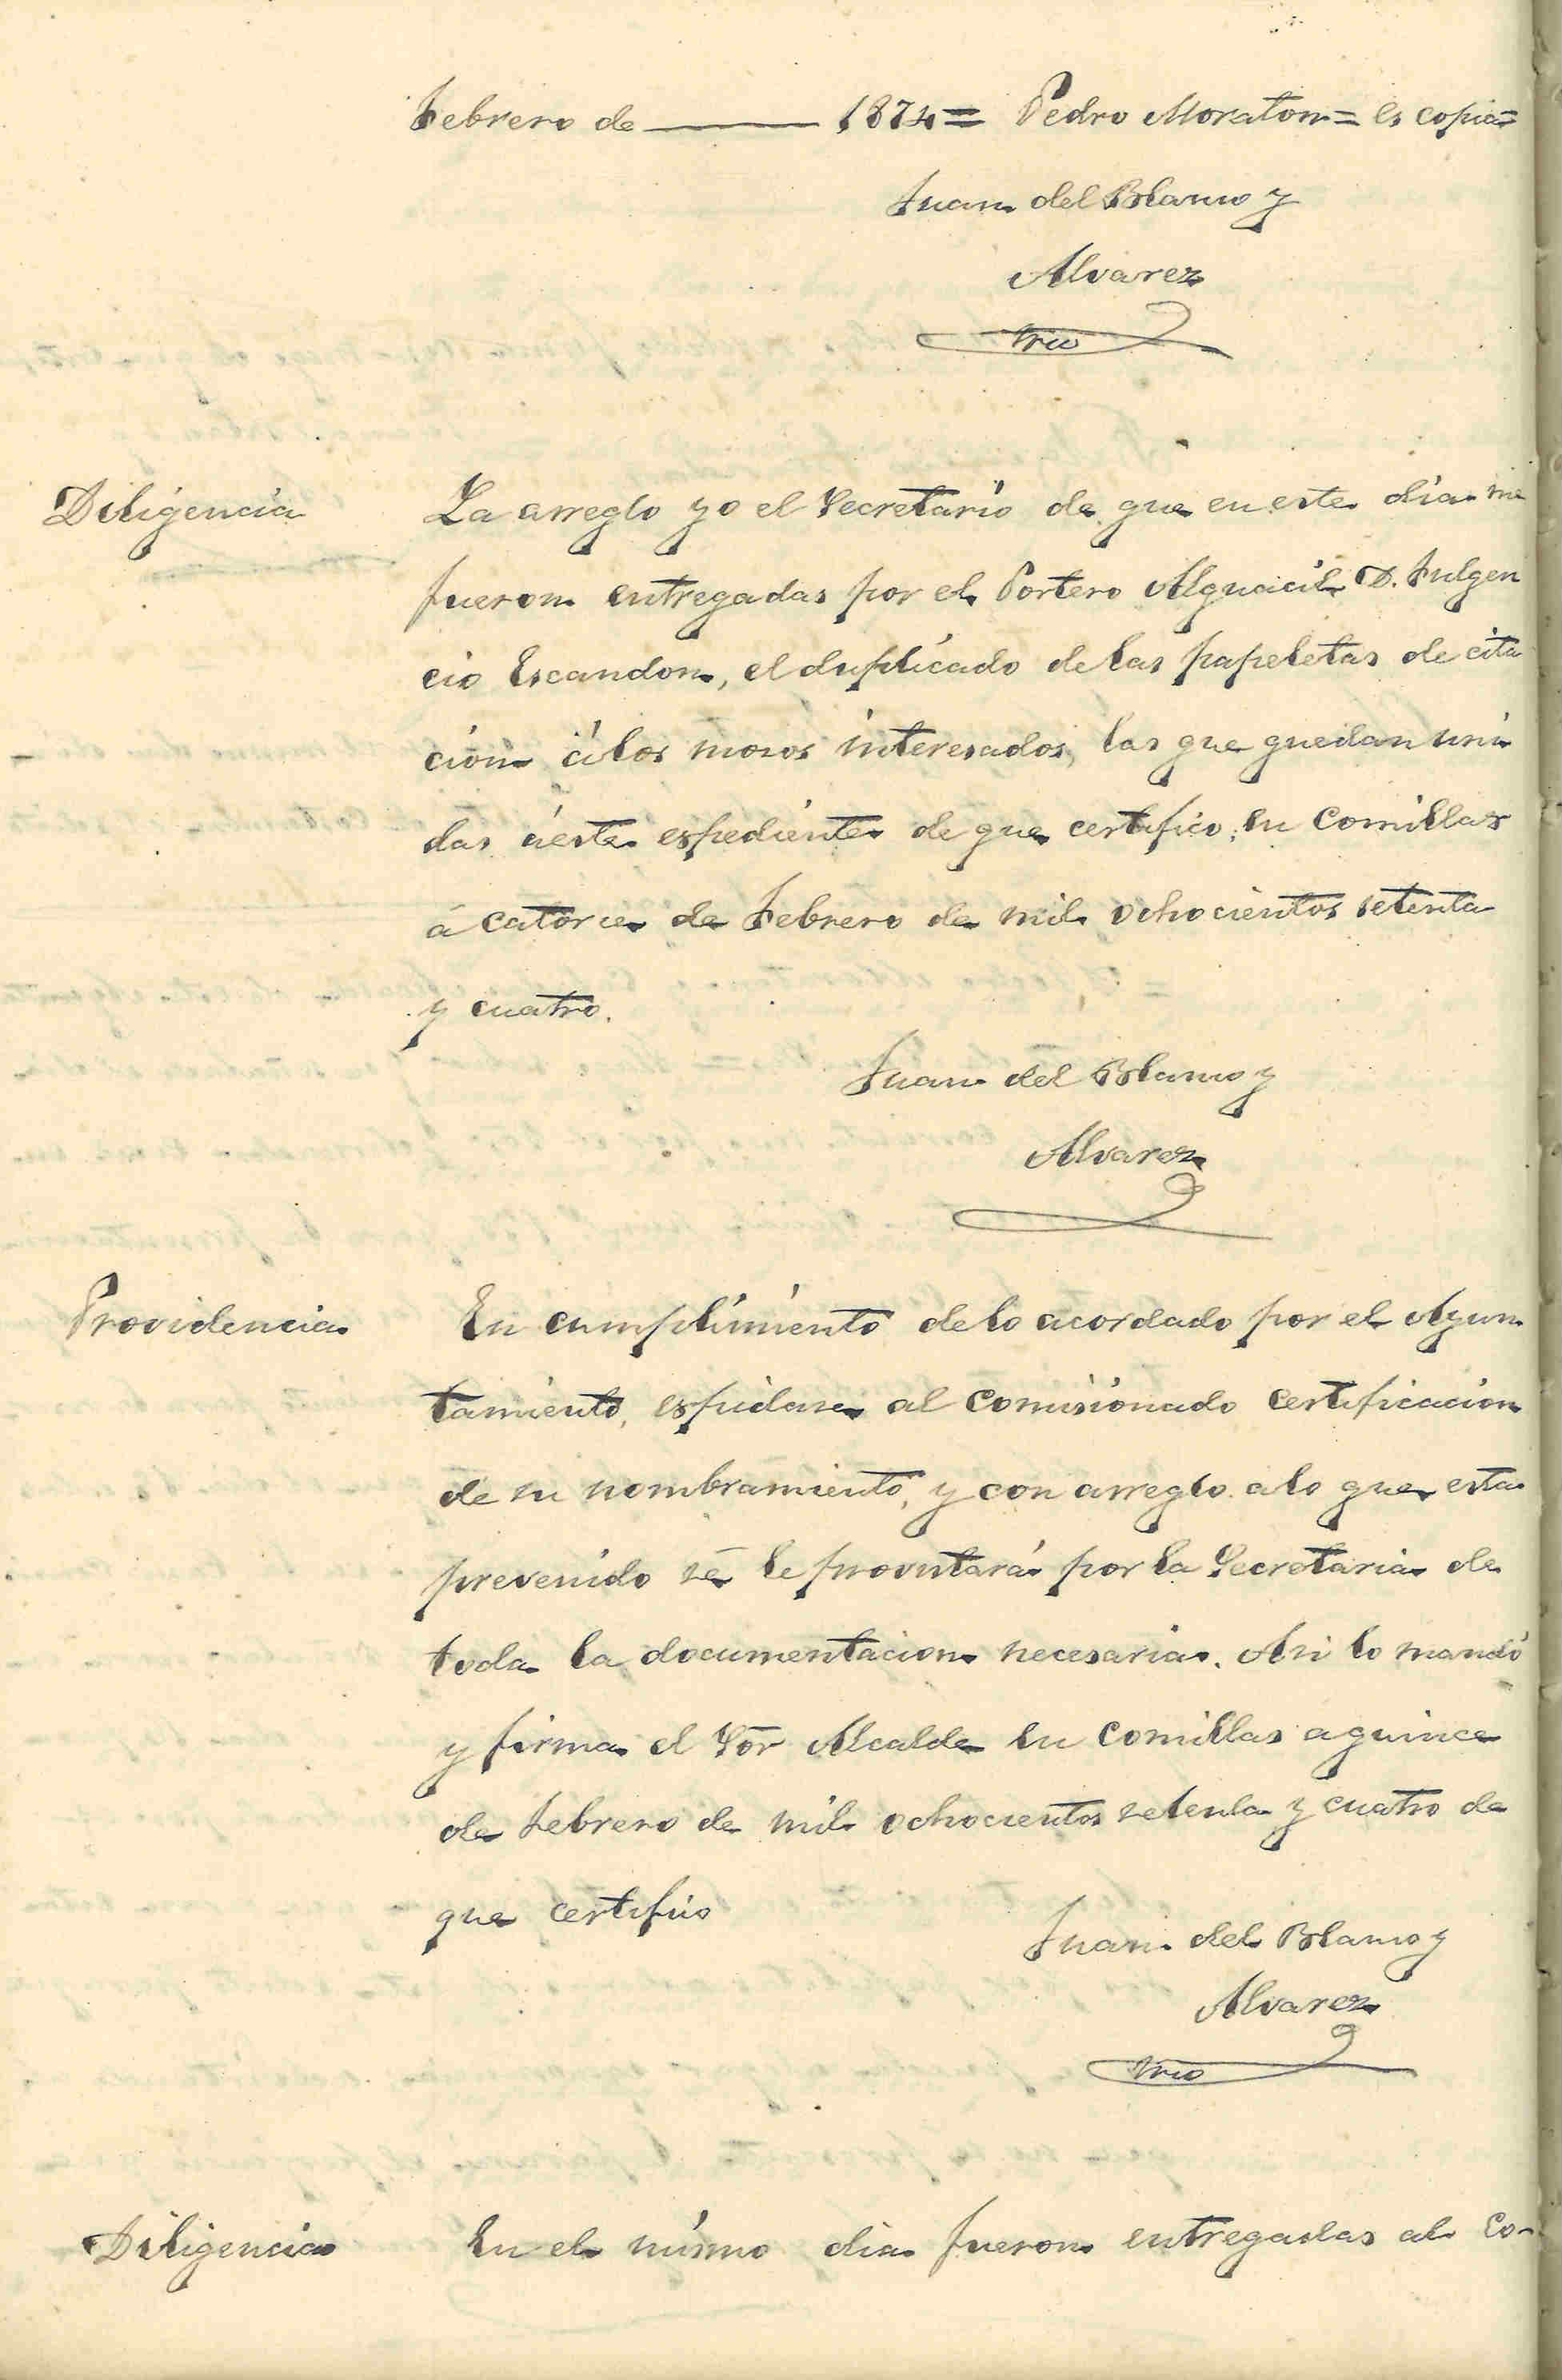 Febrero de ——— 1874 = Pedro Moraton = es copia =
Juan del Blanco y
Alvarez
Srio
Diligencia
La arreglo yo el Secretario de que en este dia me
fueron entregadas por el Portero Alguacil D. Fulgen
cio Escandon, el duplicado de las papeletas de cita
cion á los mozos interesados, las que quedan uni
das á este espediente de que certifico; en Comillas
á catorce de Febrero de mil ochocientos setenta
y cuatro.
Juan del Blanco y
Alvarez
Providencia
En cumplimiento de lo acordado por el Ayun
tamiento, espidase al comisionado certificacion
de su nombramiento, y con arreglo a lo que esta
prevenido se le por la Secretaria de
toda la documentacion necesaria. Asi lo mandó
y firma el Sor Alcalde en Comillas a quince
de Febrero de mil ochocientos setenta y cuatro de
que certifico
Juan del Blanco y
Alvarez
Srio
Diligencia
En el mismo dia fueron entregadas al Co-